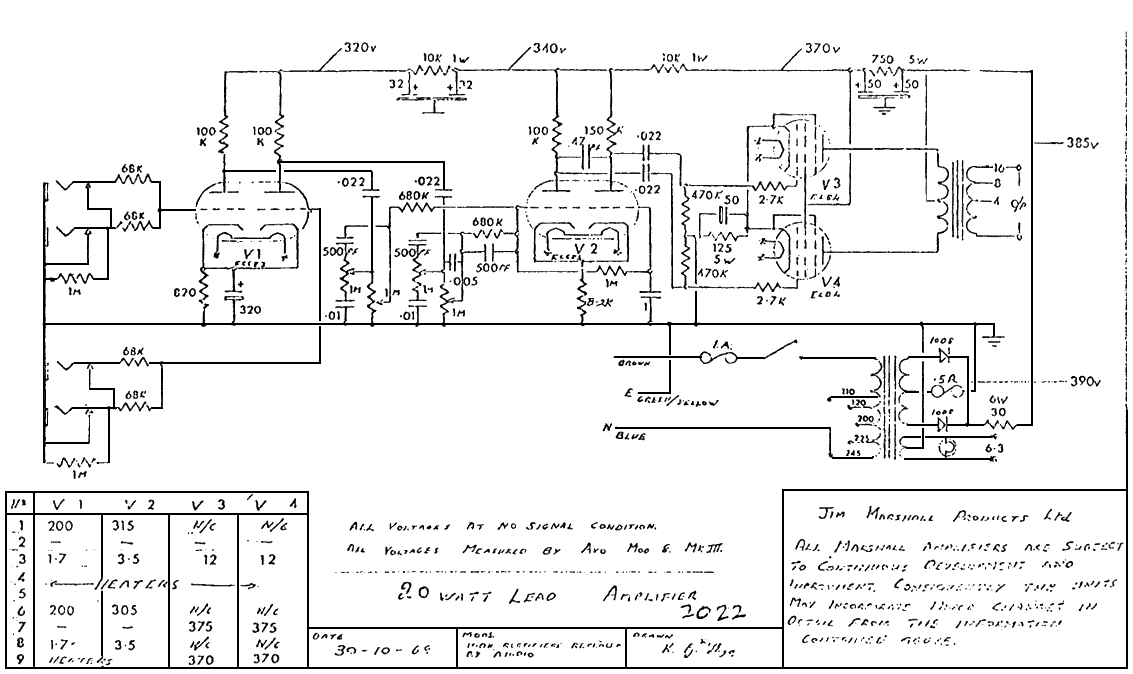 320v
10K 1W
340v
10K 1W
370v
750 5W
32 +
+ 32
+ 50
+ 50
100 K
100 K
100 K
150 K
47 PF
.022
385v
68K
.022
.022
.022
V3
EL84
16
8
4
O/P
680K
470K
50
2.7K
68K
680K
V1
ECC83
500PF
500PF
500PF
V2
125
5W
V4
EL84
1M
820
+
320
1M
1M
.005
1M
1M
470K
2.7K
.01
.01
8.2K
1
68K
1.A.
BROWN
100S
.5A
390v
E GREEN/YELLOW
110
120
6W
30
68K
N BLUE
200
225
245
100S
6.3
1M
V 1 V 2 V 3 V 4
1 200 315 N/C N/C
2 — — — —
3 1.7 3.5 12 12
4 HEATERS
5
6 200 305 N/C N/C
7 — — 375 375
8 1.7 3.5 N/C N/C
9 HEATERS 370 370
ALL VOLTAGES AT NO SIGNAL CONDITION.
ALL VOLTAGES MEASURED BY AVO MOD 8. MK III.
20 WATT LEAD AMPLIFIER
2022
DATE
30-10-69
MODS
DRAWN
JIM MARSHALL PRODUCTS Ltd
ALL MARSHALL AMPLIFIERS ARE SUBJECT
TO CONTINUOUS DEVELOPMENT AND
IMPROVEMENT, CONSEQUENTLY THE UNITS
MAY INCORPORATE MINOR CHANGES IN
DETAIL FROM THE INFORMATION
CONTAINED ABOVE.